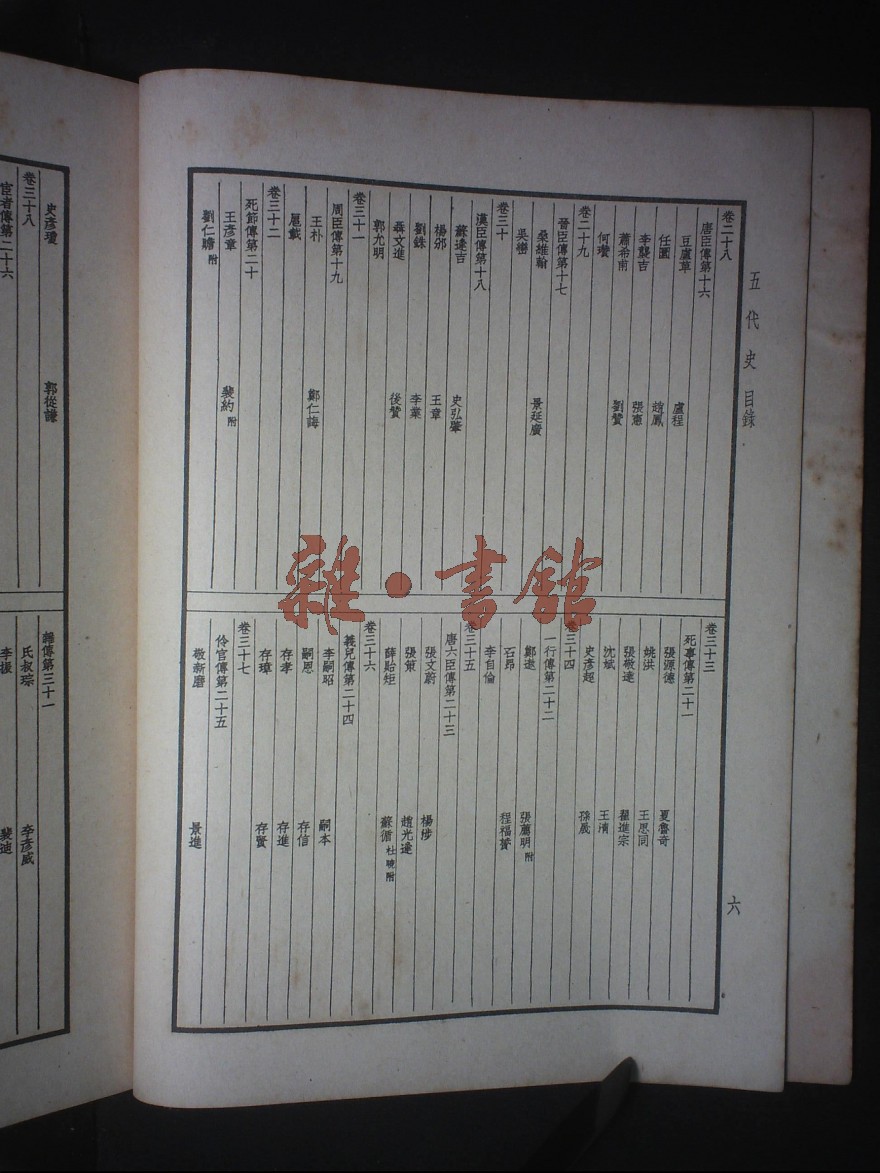 五代史 目錄
六
卷二十八
唐臣傳第十六
豆盧革 盧程
任圜 趙鳳
李襲吉 張憲
蕭希甫 劉贊
何瓚
卷二十九
晉臣傳第十七
桑維翰 景延廣
吳巒
卷三十
漢臣傳第十八
蘇逢吉 史弘肇
楊邠 王章
劉銖 李業
聶文進 後贊
郭允明
卷三十一
周臣傳第十九
王朴 鄭仁誨
扈載
卷三十二
死節傳第二十
王彥章 裴約附
劉仁贍附
卷三十三
死事傳第二十一
張源德 夏魯奇
姚洪 王思同
張敬達 翟進宗
沈斌 王清
史彥超 孫晟
卷三十四
一行傳第二十二
鄭遨 張薦明附
石昂 程福贇
李自倫
卷三十五
唐六臣傳第二十三
張文蔚 楊涉
張策 趙光逢
薛貽矩 蘇循 杜曉附
卷三十六
義兒傳第二十四
李嗣昭 嗣本
嗣恩 存信
存孝 存進
存璋 存賢
卷三十七
伶官傳第二十五
敬新磨 景進
史彥瓊 郭從謙
卷三十八
宦者傳第二十六
雜傳第三十一
氏叔琮 李彥威
李振 裴迪
雜·書館